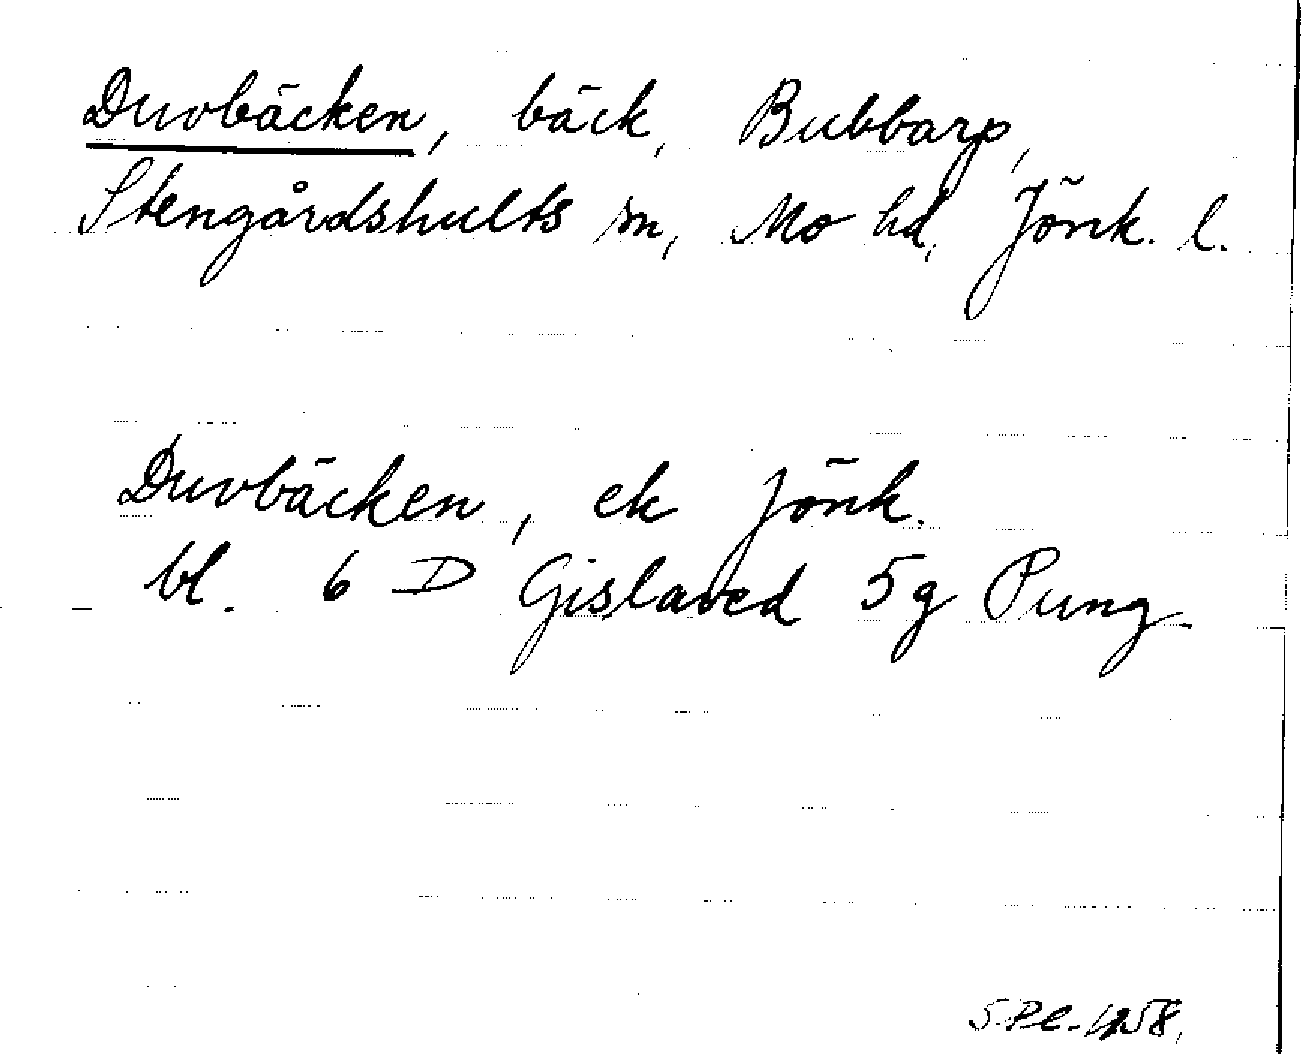 Duvbäcken, bäck, Bubbarp,
Stengårdshults sn, Mo hd, Jönk. l.
Duvbäcken, ek Jönk.
bl. 6 D Gislaved 5g Pung
S.Pl. 1958.